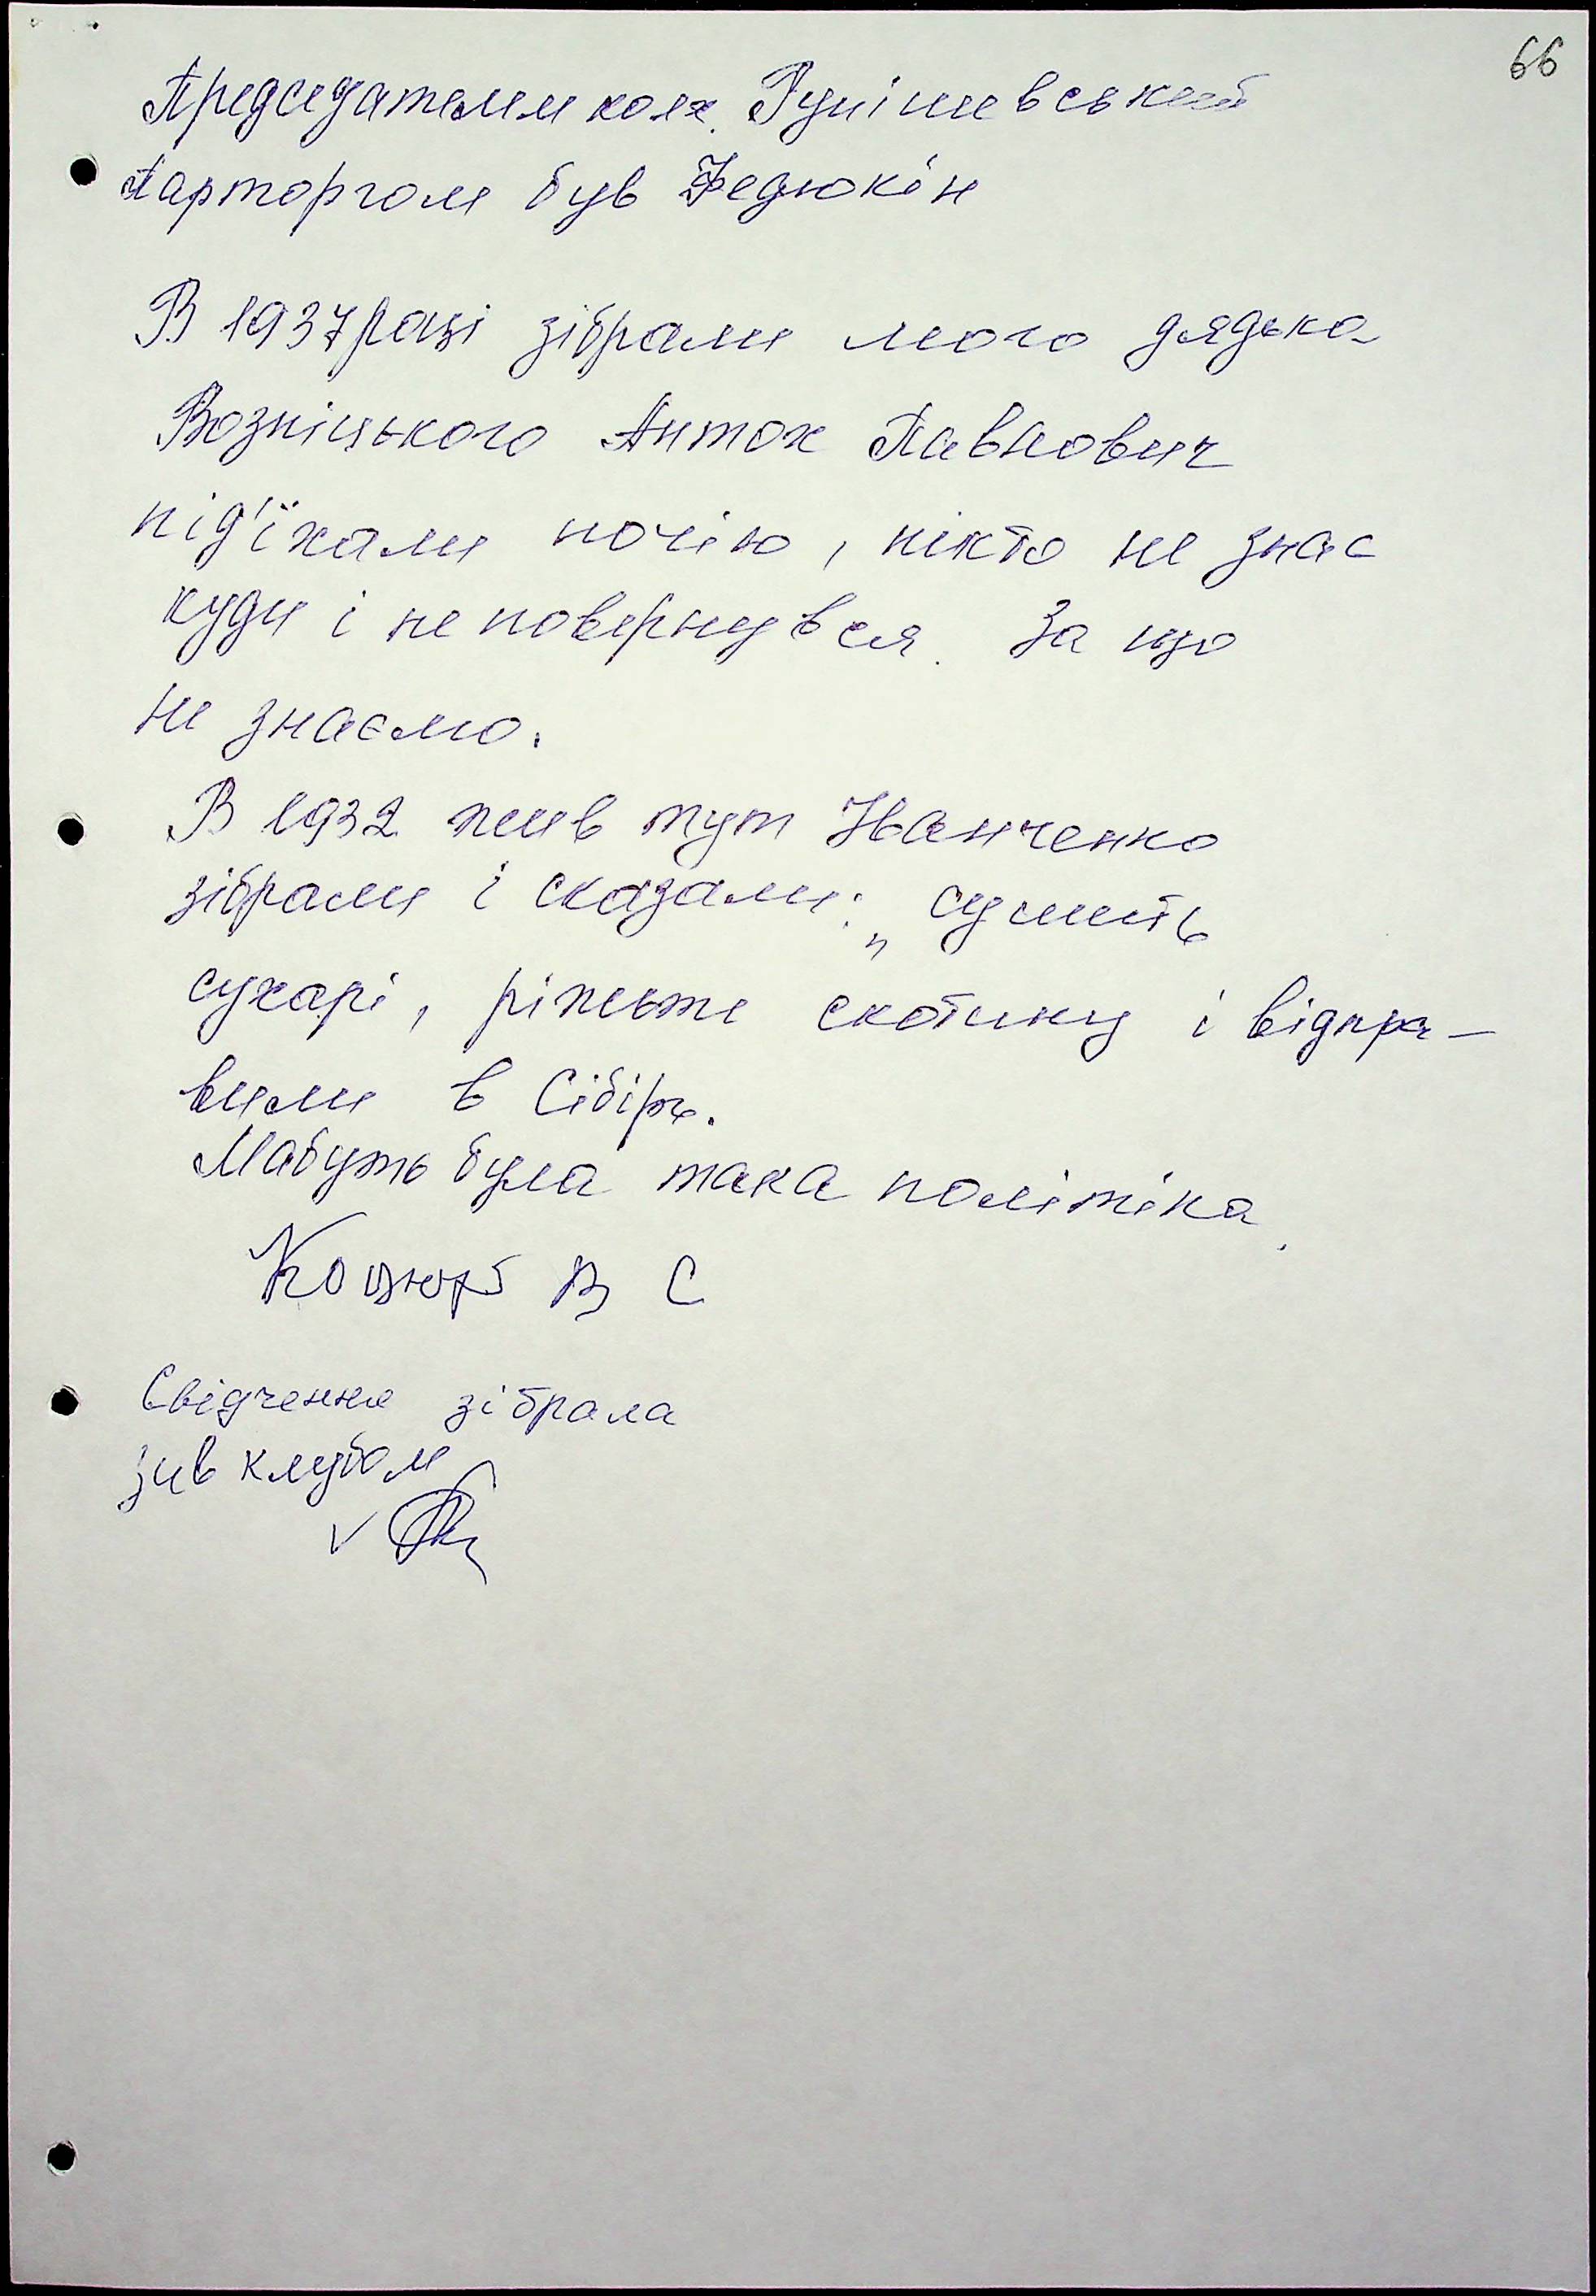 66
Председателем колх. Рушішевський
Парторгом був Федюкін
В 1937 році зібрали мого дядька
Возніцького Антон Павлович
під'їхали ночію, нікто не знає
куди і не повернувся. За що
не знаємо.
В 1932 жив тут Іванченко
зібрали і сказали: „сушить
сухарі, ріжьте скотину і відпра-
вили в Сібірь.
Мабуть була така политіка.
В С
Свідчення зібрала
зав клубом